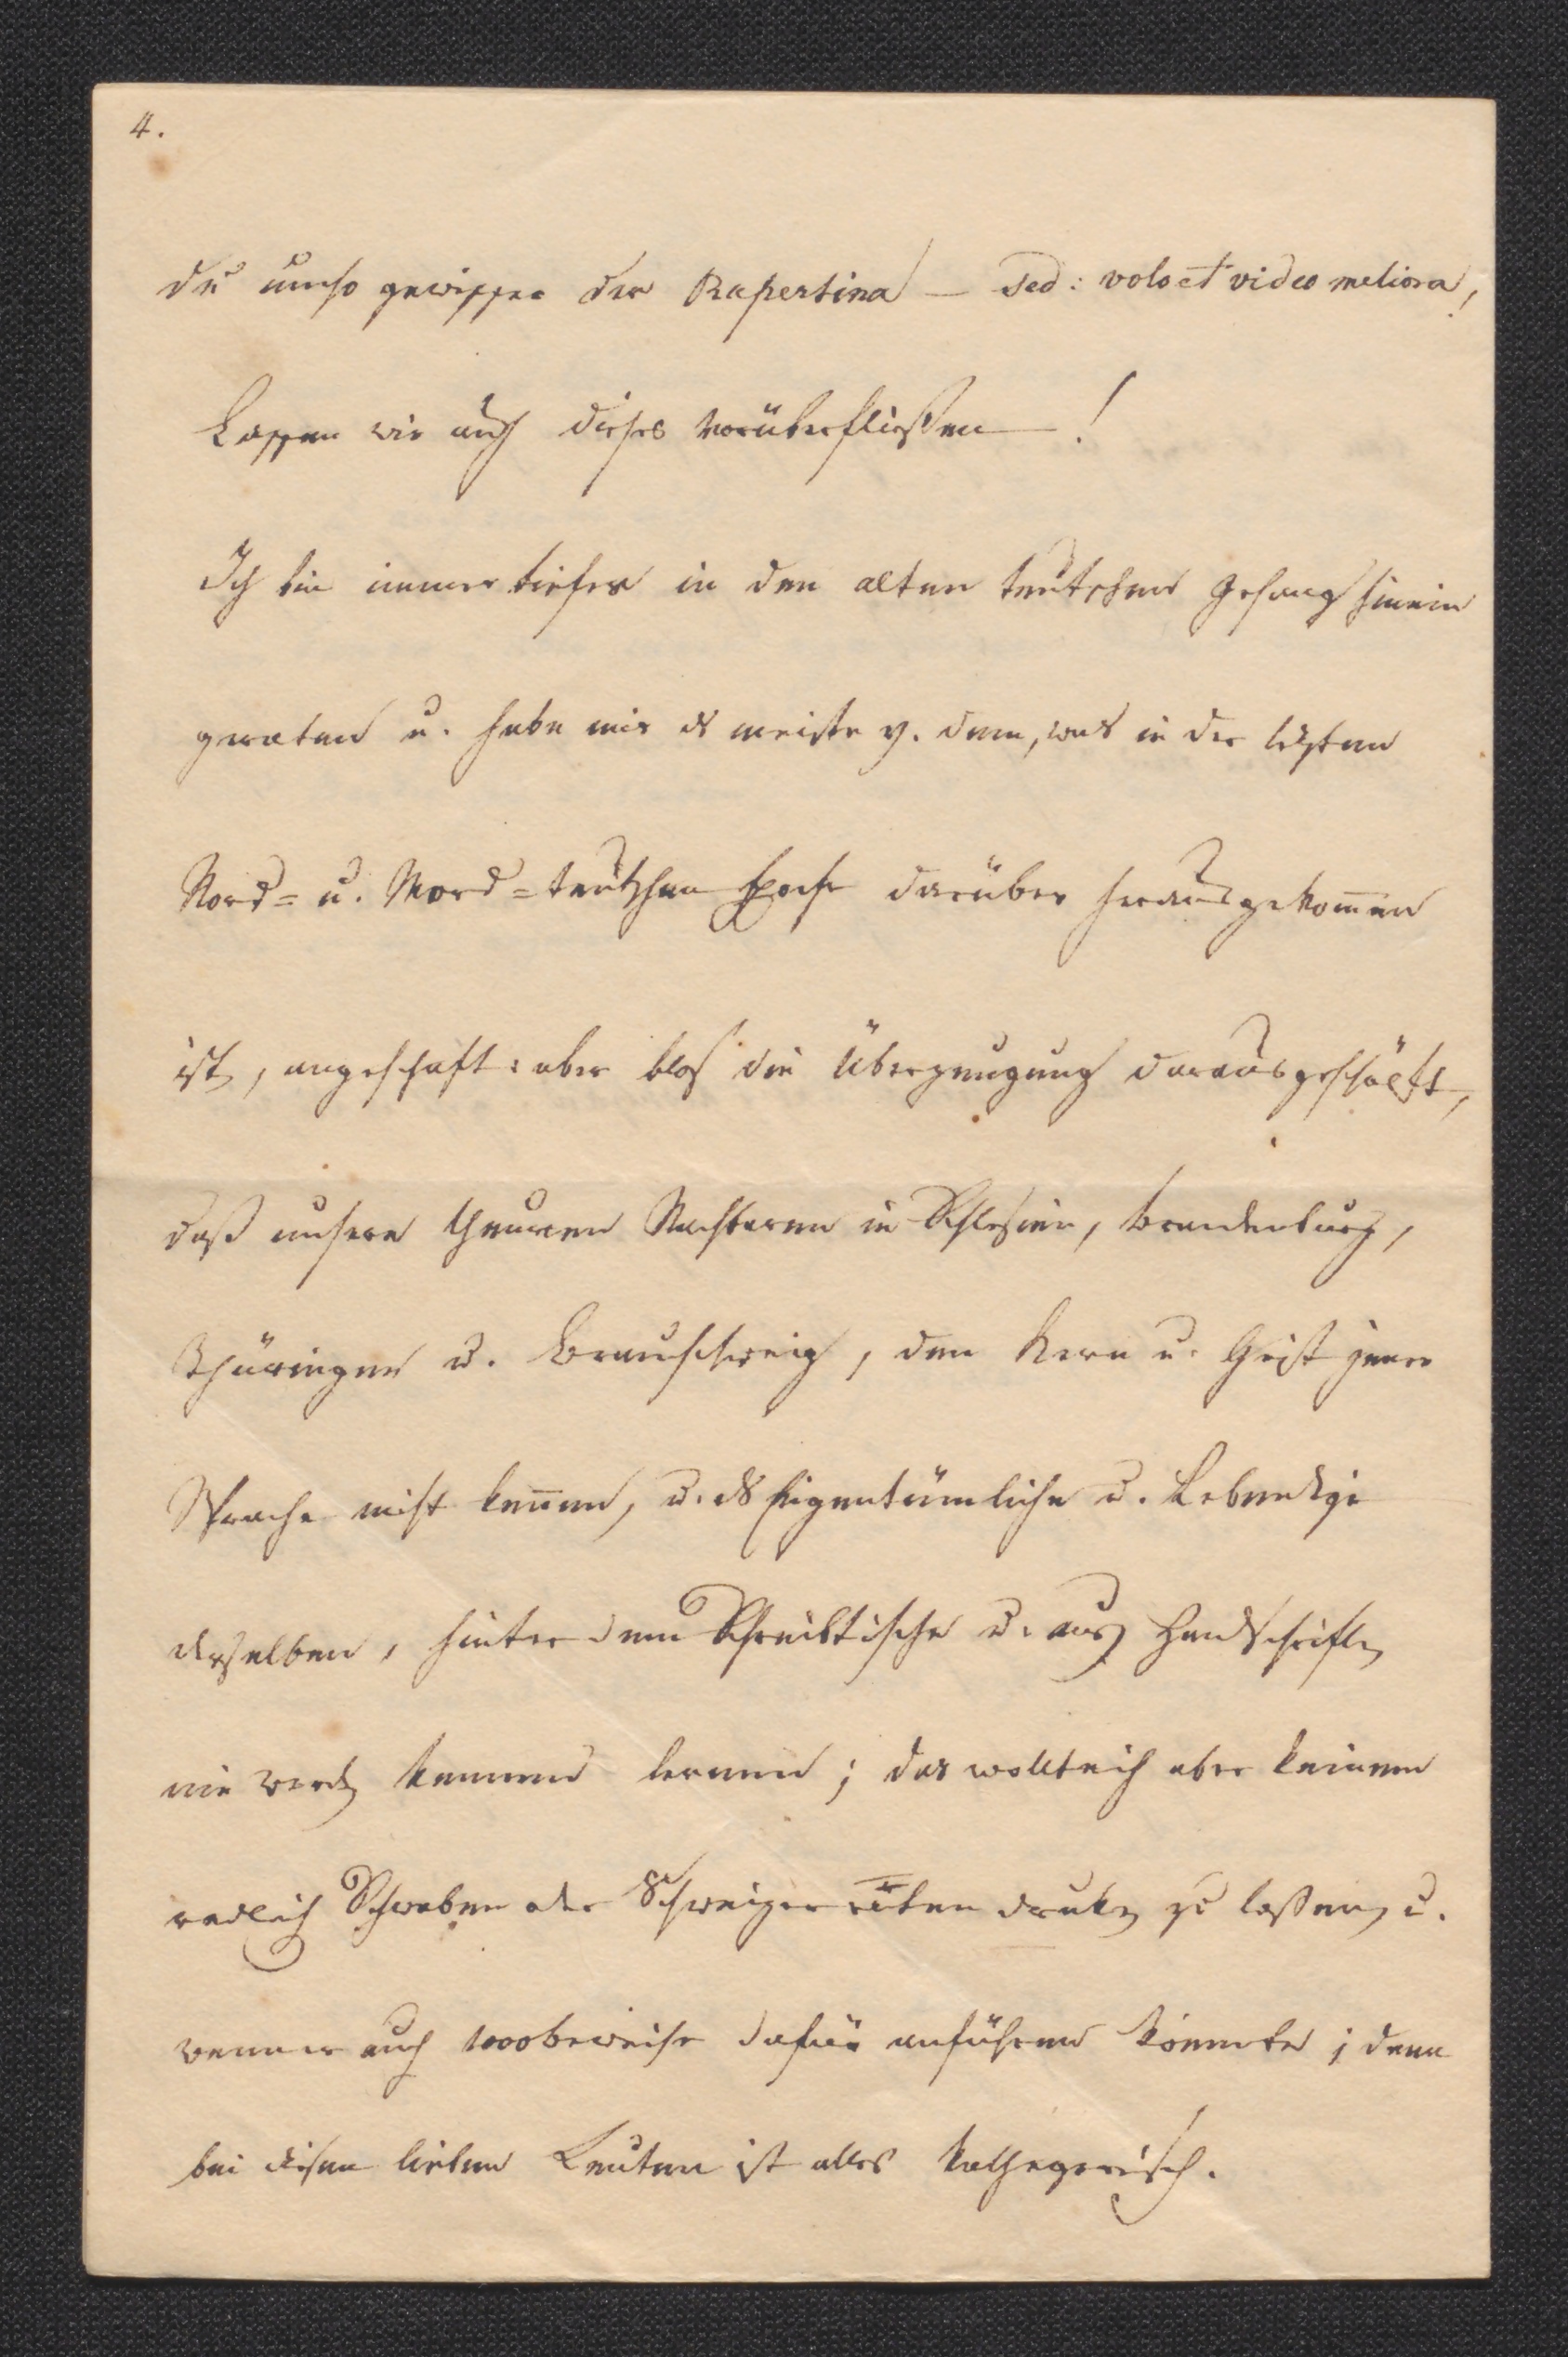 4.
du umso gewisser der Rapertina — Sed: volo et video meliora,
Lassen wir auch dieses vorüberfliessen — !
Ich bin immer tiefer in den alten teutschen Gesang hinein
geraten u. habe mir ds meiste v. dem, was in der lezten
Nord= u. Mord=teutschen Epoche darüber herausgekom̅en
ist, angeschaft: aber blos die Überzeugung daraus geschöpft,
daß unsere theuren Nachbaren in Schlesien, Brandenburg,
Thüringen u. Braunschweig, den Kern u. Geist jener
Sprache nicht ken̅en, u. ds Eigentümliche u. Lebendige
derselben, hinter dem Schreibtische u. aus Handschriften
nie werden kennen lernen; das wollte ich aber keinem
redlich Schwaben oder Schweizer raten druken zu lassen, u.
wenn er auch 1000 beweise dafür anführen könnte; denn
bei disen lieben Leuten ist alles kathegorisch.